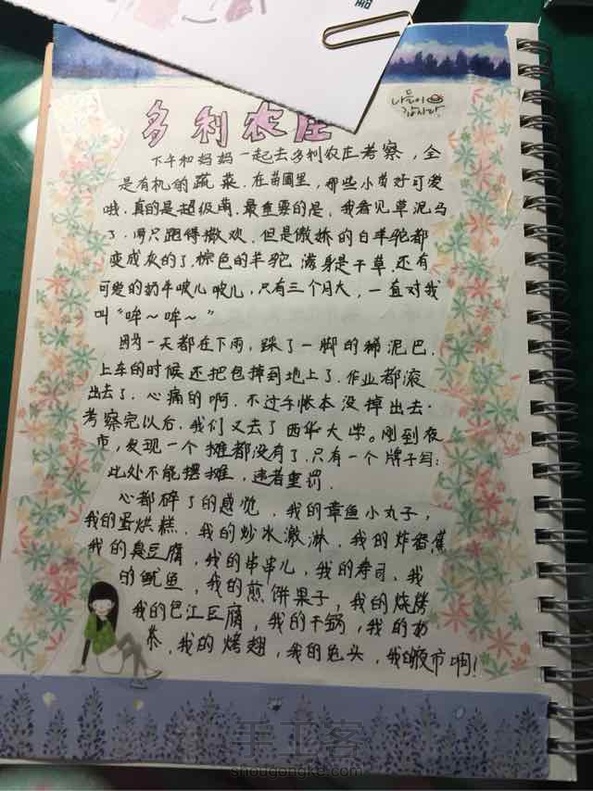 多利农庄
下午和妈妈一起去多利农庄考察，全
是有机的蔬菜．在苗圃里，那些小苗好可爱
哦．真的是超级萌．最重要的是，我看见草泥马
了．两只跑得撒欢．但是傲娇的白羊驼都
变成灰的了，棕色的羊驼 满身是干草．还有
可爱的奶牛啵儿啵儿，只有三个月大，一直对我
叫“哞～哞～”
因为一天都在下雨，踩了一脚的稀泥巴．
上车的时候还把包掉到地上了．作业都滚
出去了．心痛的啊．不过手帐本没掉出去．
考察完以后，我们又去了西华大学。刚到夜
市，发现一个摊都没有了．只有一个牌子写：
此处不能摆摊，违者重罚．
心都碎了的感觉．我的章鱼小丸子，
我的蛋烘糕．我的炒冰激淋，我的炸香蕉
我的臭豆腐，我的串串儿，我的寿司，我
的鱿鱼，我的煎饼果子，我的烧烤
我的包江豆腐，我的干锅，我的
茶，我的烤翅，我的兔头，我的夜市啊！
手工客
shougongke.com